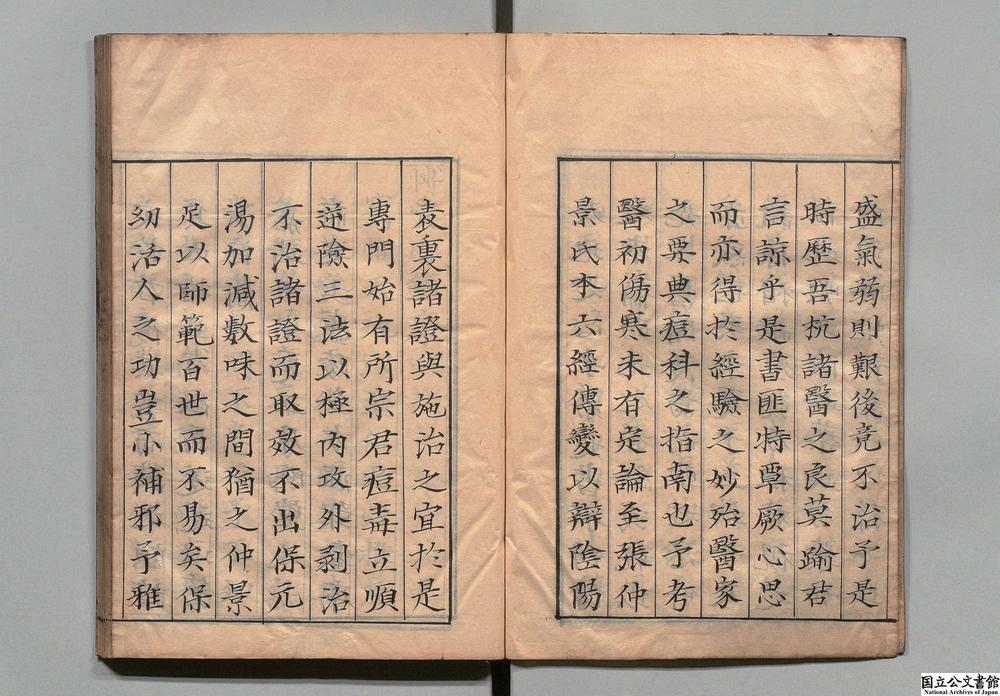 盛氣弱則艱後竟不治予是
時歷吾抗諸醫之良莫踰君
言諒乎是書匪特覃厥心思
而亦得於經驗之妙殆醫家
之要典痘科之指南也予考
醫初傷寒未有定論至張仲
景氏本六經傳變以辯陰陽
表裏諸證與施治之宜於是
專門始有所宗君痘毒立順
逆險三法以極內攻外剥治
不治諸證而取效不出保元
湯加減數味之間猶之仲景
足以師範百世而不易矣保
幼活人之功豈小補邪予雅
国立公文書館
National Archives of Japan